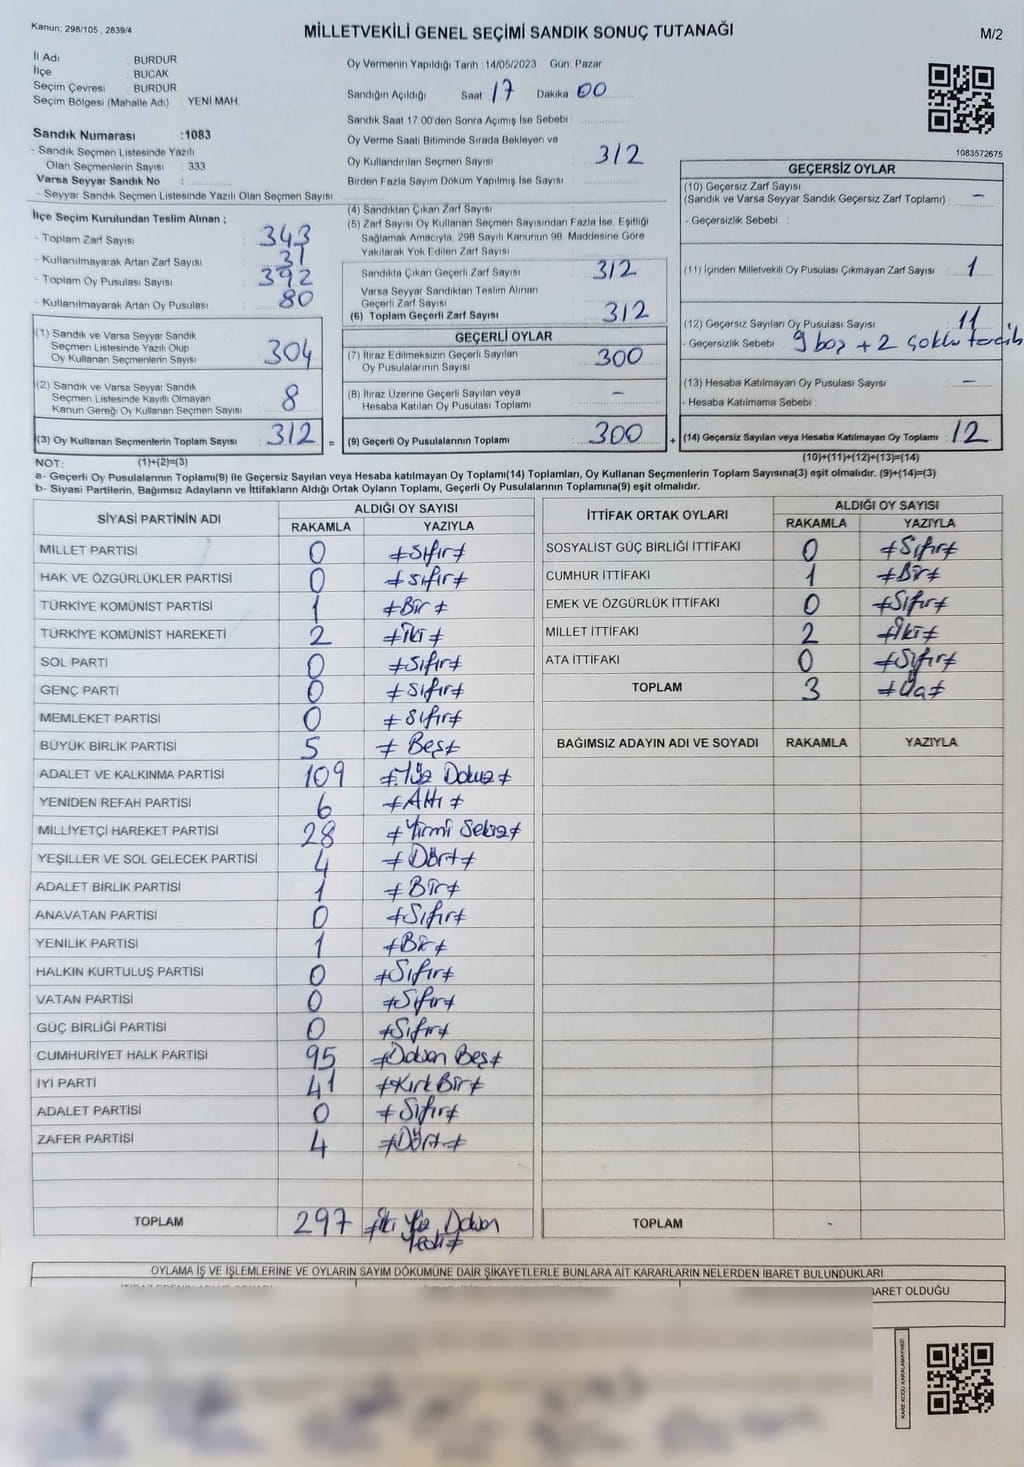 Kanun; 298/105 , 2839/4
MİLLETVEKİLİ GENEL SEÇİMİ SANDIK SONUÇ TUTANAĞI
M/2
İl Adı : BURDUR
İlçe : BUCAK
Seçim Çevresi : BURDUR
Seçim Bölgesi (Mahalle Adı) : YENİ MAH.
Sandık Numarası :1083
- Sandık Seçmen Listesinde Yazılı
Olan Seçmenlerin Sayısı : 333
Varsa Seyyar Sandık No :
- Seyyar Sandık Seçmen Listesinde Yazılı Olan Seçmen Sayısı
Oy Vermenin Yapıldığı Tarih :14/05/2023 Gün: Pazar
Sandığın Açıldığı Saat 17 Dakika 00
Sandık Saat 17:00'den Sonra Açımış İse Sebebi :
Oy Verme Saati Bitiminde Sırada Bekleyen ve
Oy Kullandırılan Seçmen Sayısı : 312
Birden Fazla Sayım Döküm Yapılmış İse Sayısı :
1083572675
İlçe Seçim Kurulundan Teslim Alınan ;
- Toplam Zarf Sayısı : 343
- Kullanılmayarak Artan Zarf Sayısı : 31
- Toplam Oy Pusulası Sayısı : 392
- Kullanılmayarak Artan Oy Pusulası : 80
(1) Sandık ve Varsa Seyyar Sandık
Seçmen Listesinde Yazılı Olup
Oy Kullanan Seçmenlerin Sayısı : 304
(2) Sandık ve Varsa Seyyar Sandık
Seçmen Listesinde Kayıtlı Olmayan
Kanun Gereği Oy Kullanan Seçmen Sayısı : 8
(3) Oy Kullanan Seçmenlerin Toplam Sayısı : 312 =
(4) Sandıktan Çıkan Zarf Sayısı :
(5) Zarf Sayısı Oy Kullanan Seçmen Sayısından Fazla İse, Eşitliği
Sağlamak Amacıyla, 298 Sayılı Kanunun 98. Maddesine Göre
Yakılarak Yok Edilen Zarf Sayısı
Sandıkta Çıkan Geçerli Zarf Sayısı : 312
Varsa Seyyar Sandıktan Teslim Alınan
Geçerli Zarf Sayısı :
(6) Toplam Geçerli Zarf Sayısı : 312
GEÇERLİ OYLAR
(7) İtiraz Edilmeksizin Geçerli Sayılan
Oy Pusulalarının Sayısı : 300
(8) İtiraz Üzerine Geçerli Sayılan veya
Hesaba Katılan Oy Pusulası Toplamı : -
(9) Geçerli Oy Pusulalarının Toplamı : 300 +
GEÇERSİZ OYLAR
(10) Geçersiz Zarf Sayısı
(Sandık ve Varsa Seyyar Sandık Geçersiz Zarf Toplamı) : -
- Geçersizlik Sebebi :
(11) İçinden Milletvekili Oy Pusulası Çıkmayan Zarf Sayısı : 1
(12) Geçersiz Sayılan Oy Pusulası Sayısı : 11
- Geçersizlik Sebebi : 9 boş + 2 çoklu tercih
(13) Hesaba Katılmayan Oy Pusulası Sayısı : -
- Hesaba Katılmama Sebebi :
(14) Geçersiz Sayılan veya Hesaba Katılmayan Oy Toplamı : 12
NOT: (1)+(2)=(3)
(10)+(11)+(12)+(13)=(14)
a- Geçerli Oy Pusulalarının Toplamı(9) ile Geçersiz Sayılan veya Hesaba katılmayan Oy Toplamı(14) Toplamları, Oy Kullanan Seçmenlerin Toplam Sayısına(3) eşit olmalıdır. (9)+(14)=(3)
b- Siyasi Partilerin, Bağımsız Adayların ve İttifakların Aldığı Ortak Oyların Toplamı, Geçerli Oy Pusulalarının Toplamına(9) eşit olmalıdır.
SİYASİ PARTİNİN ADI
ALDIĞI OY SAYISI
RAKAMLA YAZIYLA
MİLLET PARTİSİ 0 ≠Sıfır≠
HAK VE ÖZGÜRLÜKLER PARTİSİ 0 ≠sıfır≠
TÜRKİYE KOMÜNİST PARTİSİ 1 ≠Bir≠
TÜRKİYE KOMÜNİST HAREKETİ 2 ≠İki≠
SOL PARTİ 0 ≠Sıfır≠
GENÇ PARTİ 0 ≠Sıfır≠
MEMLEKET PARTİSİ 0 ≠Sıfır≠
BÜYÜK BİRLİK PARTİSİ 5 ≠Beş≠
ADALET VE KALKINMA PARTİSİ 109 ≠Yüz Dokuz≠
YENİDEN REFAH PARTİSİ 6 ≠Altı≠
MİLLİYETÇİ HAREKET PARTİSİ 28 ≠Yirmi Sekiz≠
YEŞİLLER VE SOL GELECEK PARTİSİ 4 ≠Dört≠
ADALET BİRLİK PARTİSİ 1 ≠Bir≠
ANAVATAN PARTİSİ 0 ≠Sıfır≠
YENİLİK PARTİSİ 1 ≠Bir≠
HALKIN KURTULUŞ PARTİSİ 0 ≠Sıfır≠
VATAN PARTİSİ 0 ≠Sıfır≠
GÜÇ BİRLİĞİ PARTİSİ 0 ≠Sıfır≠
CUMHURİYET HALK PARTİSİ 95 ≠Doksan Beş≠
İYİ PARTİ 41 ≠Kırk Bir≠
ADALET PARTİSİ 0 ≠Sıfır≠
ZAFER PARTİSİ 4 ≠Dört≠
TOPLAM 297 ≠İki Yüz Doksan
Yedi≠
İTTİFAK ORTAK OYLARI
ALDIĞI OY SAYISI
RAKAMLA YAZIYLA
SOSYALİST GÜÇ BİRLİĞİ İTTİFAKI 0 ≠Sıfır≠
CUMHUR İTTİFAKI 1 ≠Bir≠
EMEK VE ÖZGÜRLÜK İTTİFAKI 0 ≠Sıfır≠
MİLLET İTTİFAKI 2 ≠İki≠
ATA İTTİFAKI 0 ≠Sıfır≠
TOPLAM 3 ≠Üç≠
BAĞIMSIZ ADAYIN ADI VE SOYADI RAKAMLA YAZIYLA
TOPLAM -
OYLAMA İŞ VE İŞLEMLERİNE VE OYLARIN SAYIM DÖKÜMÜNE DAİR ŞİKAYETLERLE BUNLARA AİT KARARLARIN NELERDEN İBARET BULUNDUKLARI
İBARET OLDUĞU
KARE KODU KARALAMAYINIZ!